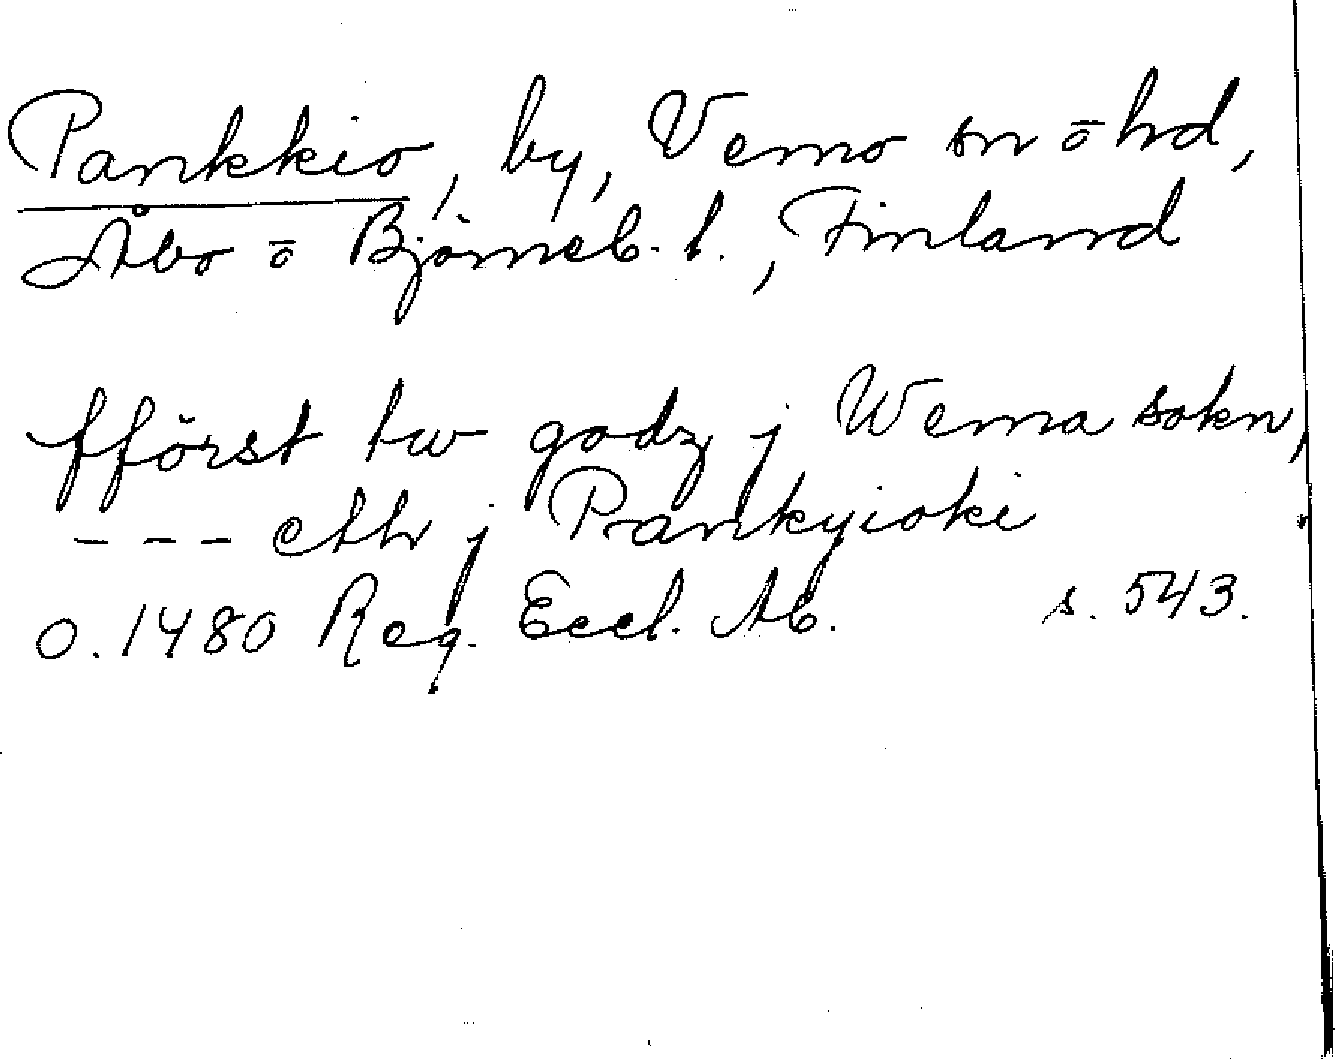 Pankkio, by, Vemo sn ō hd,
Åbo ō Björneb. l., Finland
fförst tw godz j Wema sokn,
--- eth j Pankyioki
o. 1480 Reg. Eccl. Ab. s. 543.